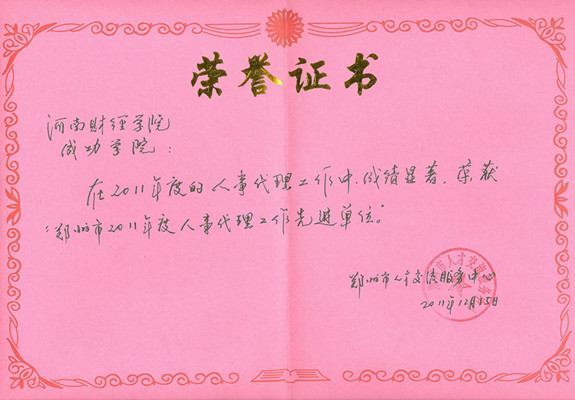 荣誉证书
河南财经学院
成功学院：
在2011年度的人事代理工作中，成绩显著，荣获
“郑州市2011年度人事代理工作先进单位”。
郑州市人才交流服务中心
2011年12月15日